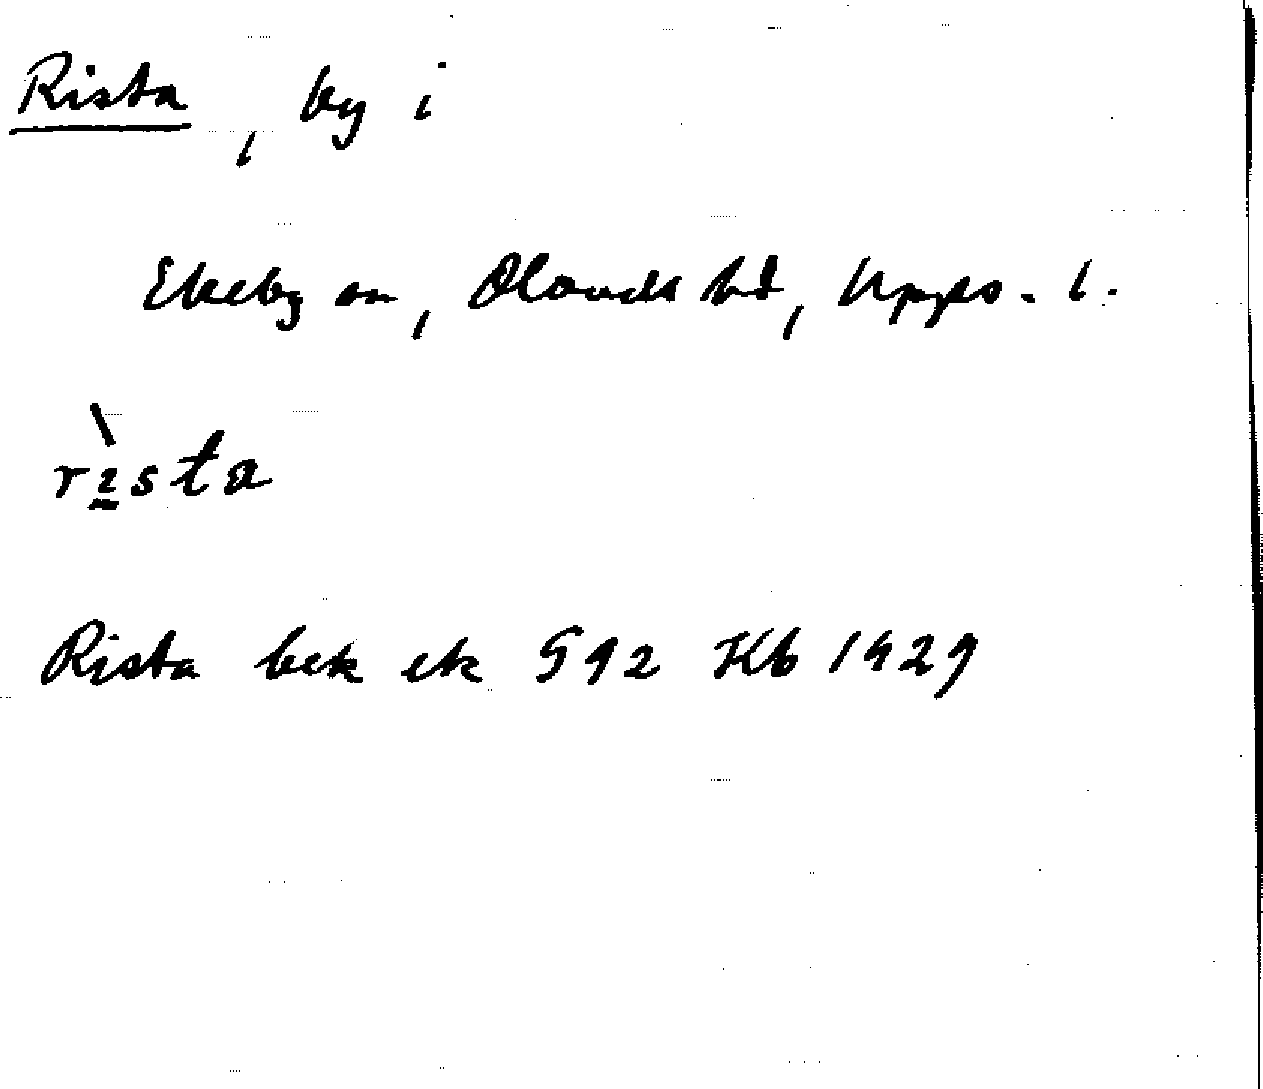 Rista, by i
Ekeby sn, Olands hd, Upps. l.
rista
Rista bek ek 592 Kb 1929